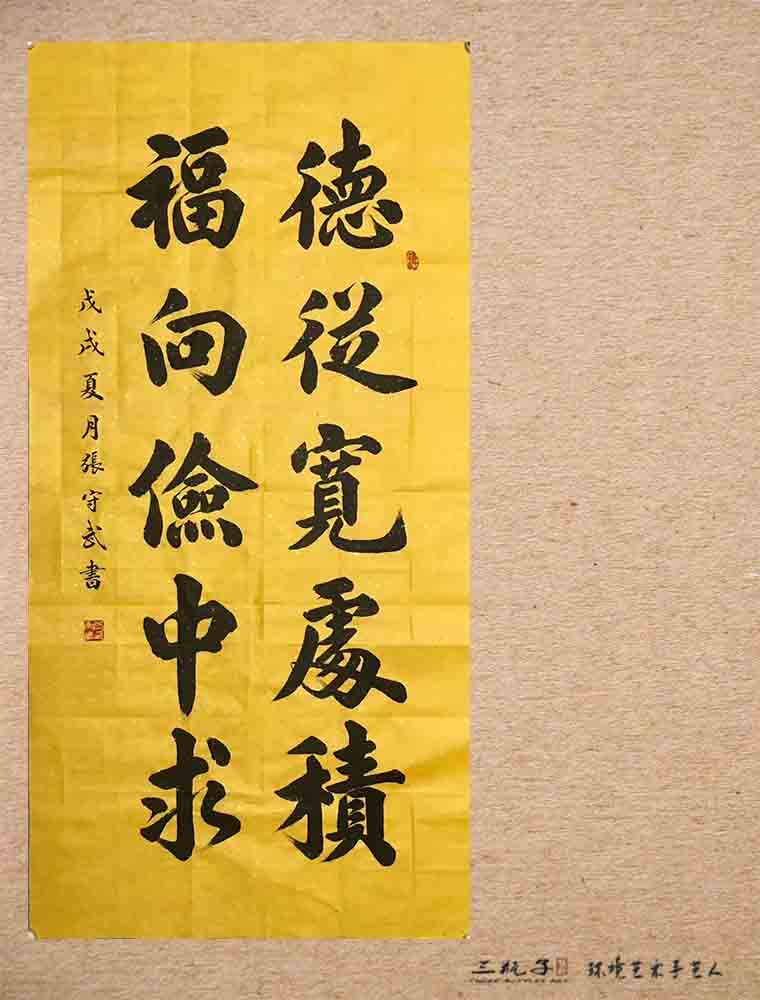 德從寬處積
福向儉中求
戊戌夏月張守武書
三瓶子 环境艺术手艺人
THREE BOTTLES ART